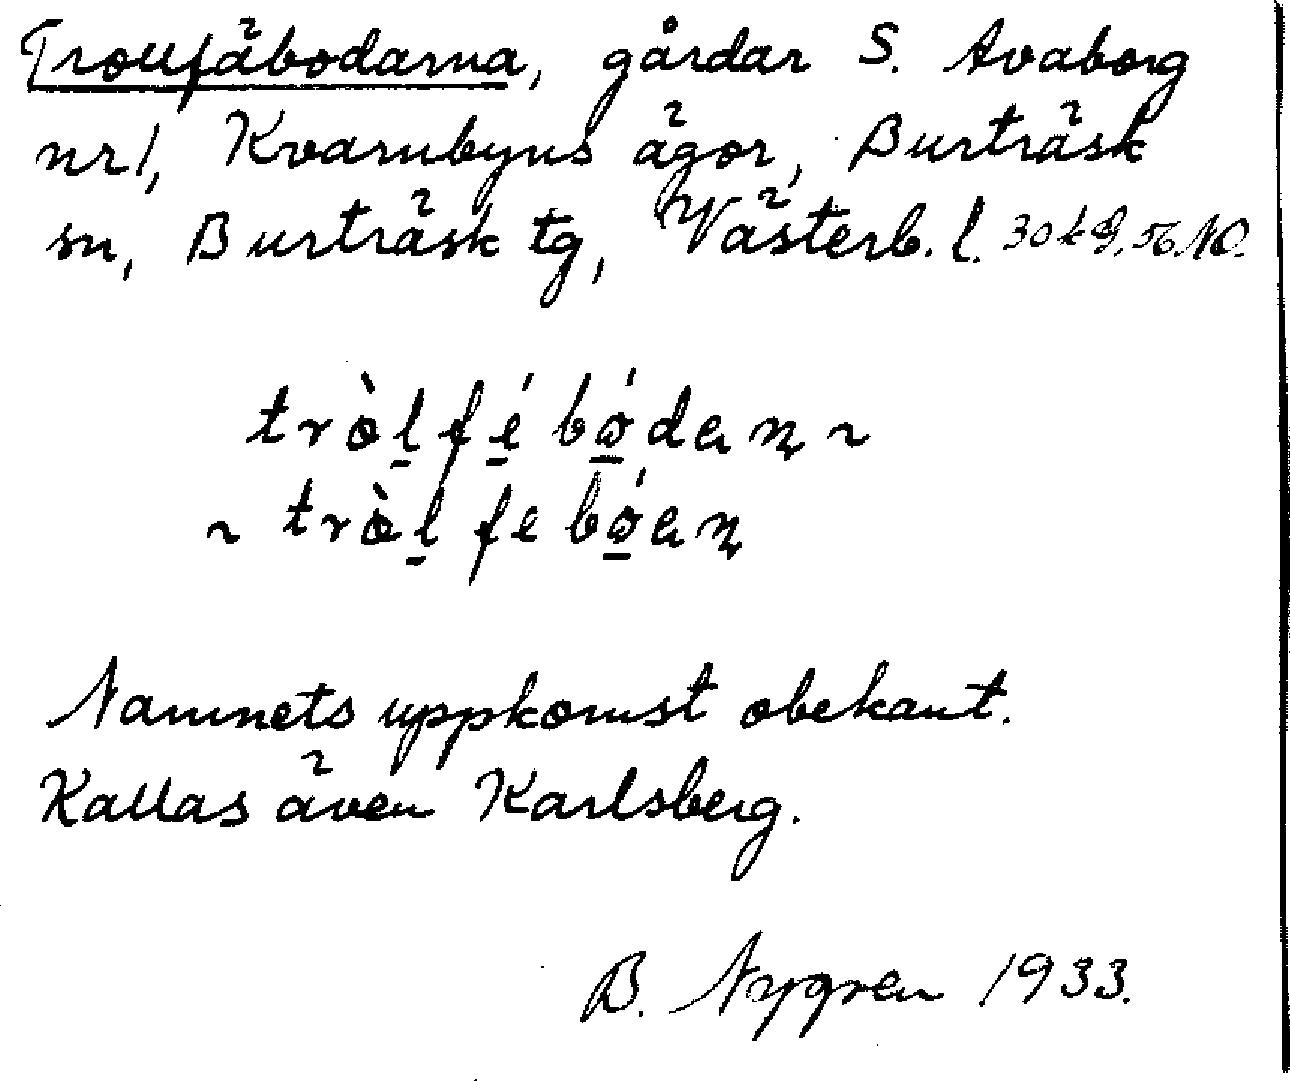 Trollfäbodarna, gårdar S. Avaborg
nr 1, Kvarnbyns ägor, Burträsk
sn, Burträsk tg, Västerb. l.
tròl̲fé̲bó̲dan ~
~ tròl̲febó̲an
Namnets uppkomst obekant.
Kallas även Karlsberg.
B. Nygren 1933.